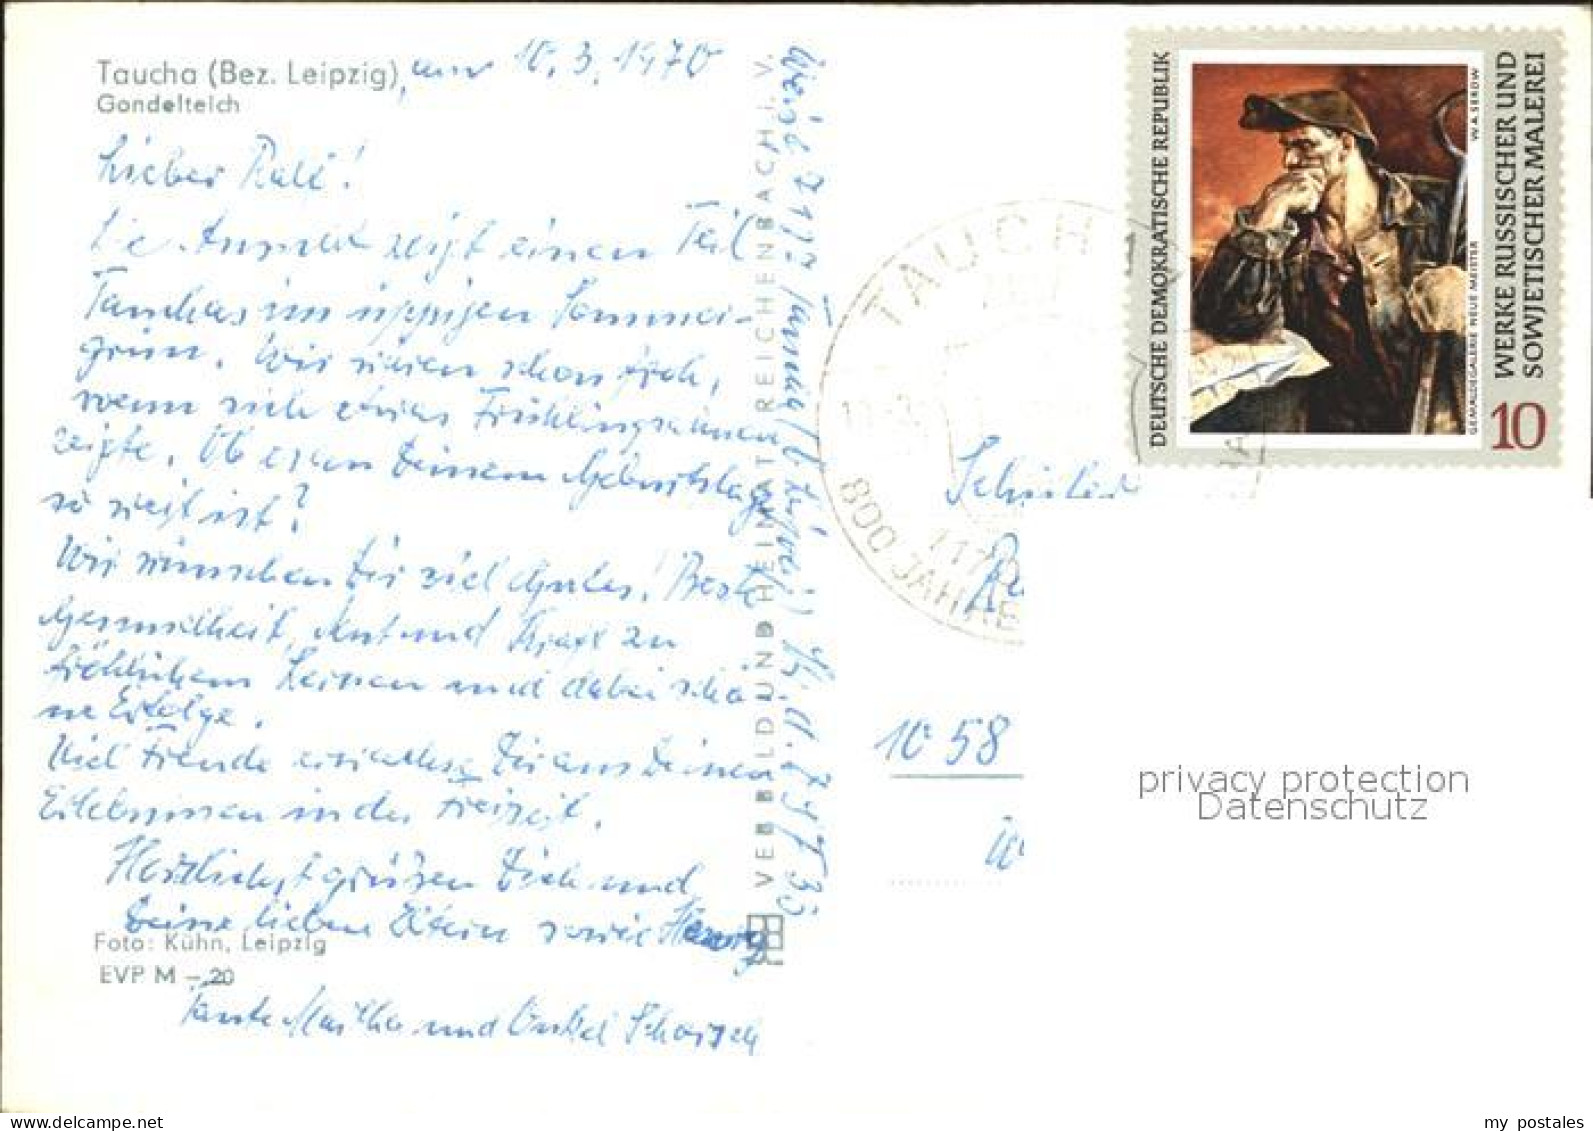 Taucha (Bez. Leipzig), am 10. 3. 1970
Gondelteich
Lieber Ralf!
Die Ansicht zeigt einen Teil
Tauchas im üppigen Sommer-
grün. Wir wären schon froh,
wenn sich etwas Frühlingsahnen
zeigte. Ob es an Deinem Geburtstage
so weit ist?
Wir wünschen Dir viel Gutes! Beste
Gesundheit, Mut und Kraft zu
fröhlichem Lernen und dabei schö-
ne Erfolge.
Viel Freude erwachse Dir aus Deinen
Erlebnissen in der Freizeit.
Herzlichst grüßen Dich und
Deine lieben Eltern sowie
Foto: Kühn, Leipzig
EVP M – 20
Tante Martha und Onkel
VEB BILD UND HEIMAT REICHENBACH I. V.
TAUCHA
800 JAHRE
1170
DEUTSCHE DEMOKRATISCHE REPUBLIK
W. A. SEROW
GEMÄLDEGALERIE NEUE MEISTER
WERKE RUSSISCHER UND
SOWJETISCHER MALEREI
10
Schüler
1058
privacy protection
Datenschutz
my postales